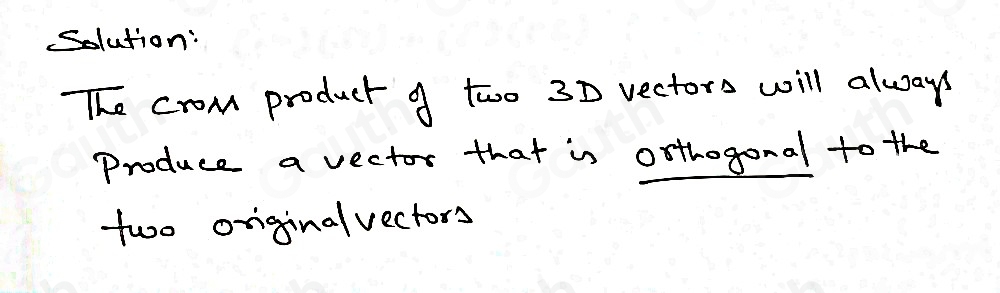 Solution:
The cross product of two 3D vectors will always
produce a vector that is orthogonal to the
two original vectors